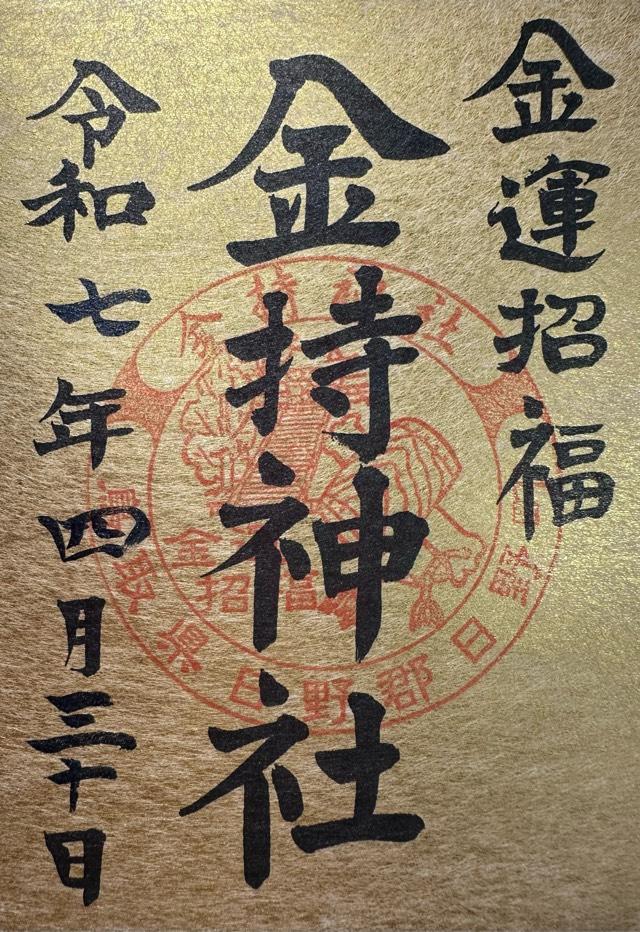 金運招福
金持神社
令和七年四月三十日
金持神社
金
招福
鳥取県日野郡日野